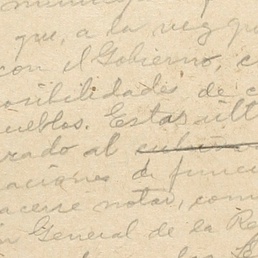 que, a la vez que
con el Gobierno, c
osibilidades de c
ueblos. Estas últ
rado al
aciones de funci
acerse notar, com
n General de la Re